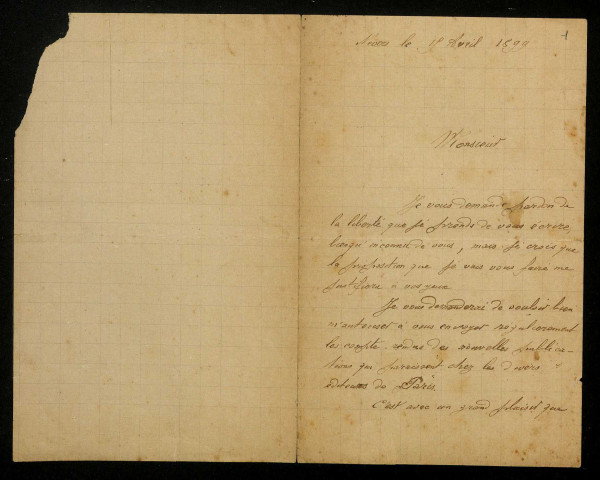 1
le 18 Avril 1899
Monsieur
Je vous demande pardon de
la liberté que je prends de vous écrire,
inconnu de vous, mais je crois que
la proposition que je vais vous faire me
justifiera à vos yeux
Je vous demanderai de vouloir bien
m'autoriser à vous envoyer régulièrement
les compte rendus des nouvelles publica-
tions qui paraissent chez les divers
éditeurs de Paris.
C'est avec un grand plaisir que